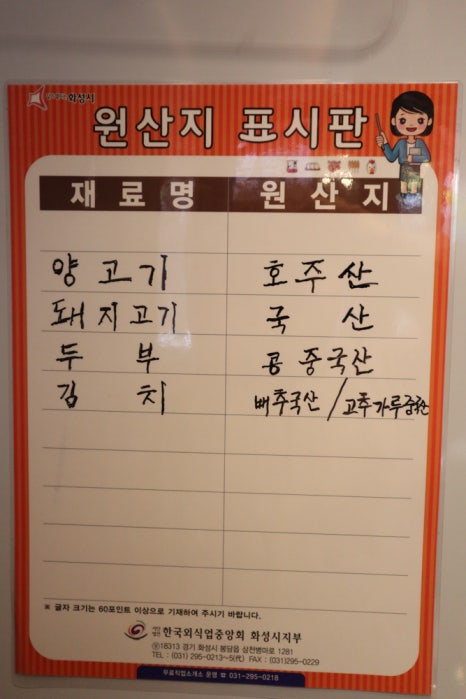 화성시
원산지 표시판
재료명 원산지
양고기 호주산
돼지고기 국산
두부 콩 중국산
김치 배추국산 / 고추가루중국산
※ 글자 크기는 60포인트 이상으로 기재하여 주시기 바랍니다.
한국외식업중앙회 화성시지부
㉾18313 경기 화성시 봉담읍 삼천병마로 1281
TEL : (031) 295-0213~5(代) FAX : (031)295-0229
무료직업소개소 운영 ☎ 031-295-0218